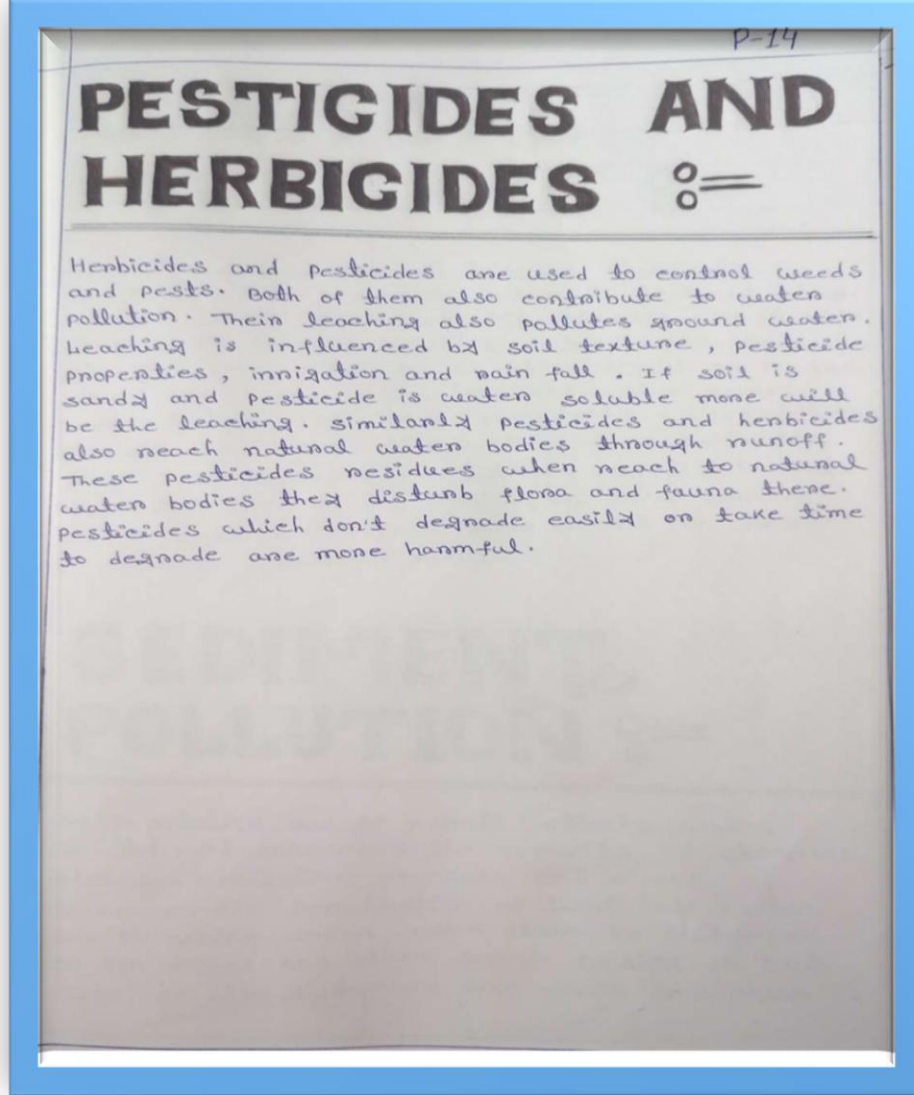 P-14
PESTICIDES AND
HERBICIDES :=
Herbicides and pesticides are used to control weeds
and pests. Both of them also contribute to water
pollution. Their leaching also pollutes ground water.
Leaching is influenced by soil texture, pesticide
properties, irrigation and rain fall. If soil is
sandy and pesticide is water soluble more will
be the leaching. similarly pesticides and herbicides
also reach natural water bodies through runoff.
These pesticides residues when reach to natural
water bodies they disturb flora and fauna there.
pesticides which don't degrade easily or take time
to degrade are more harmful.
SEDIMENT
POLLUTION :-